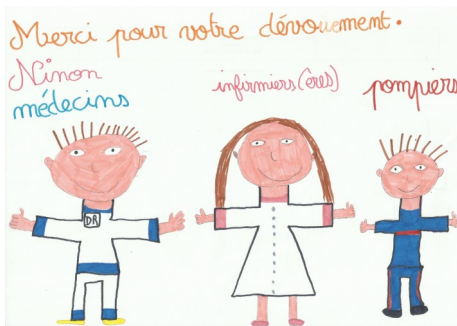 Merci pour votre dévouement.
Ninon
médecins
infirmiers(ères)
pompiers
DR